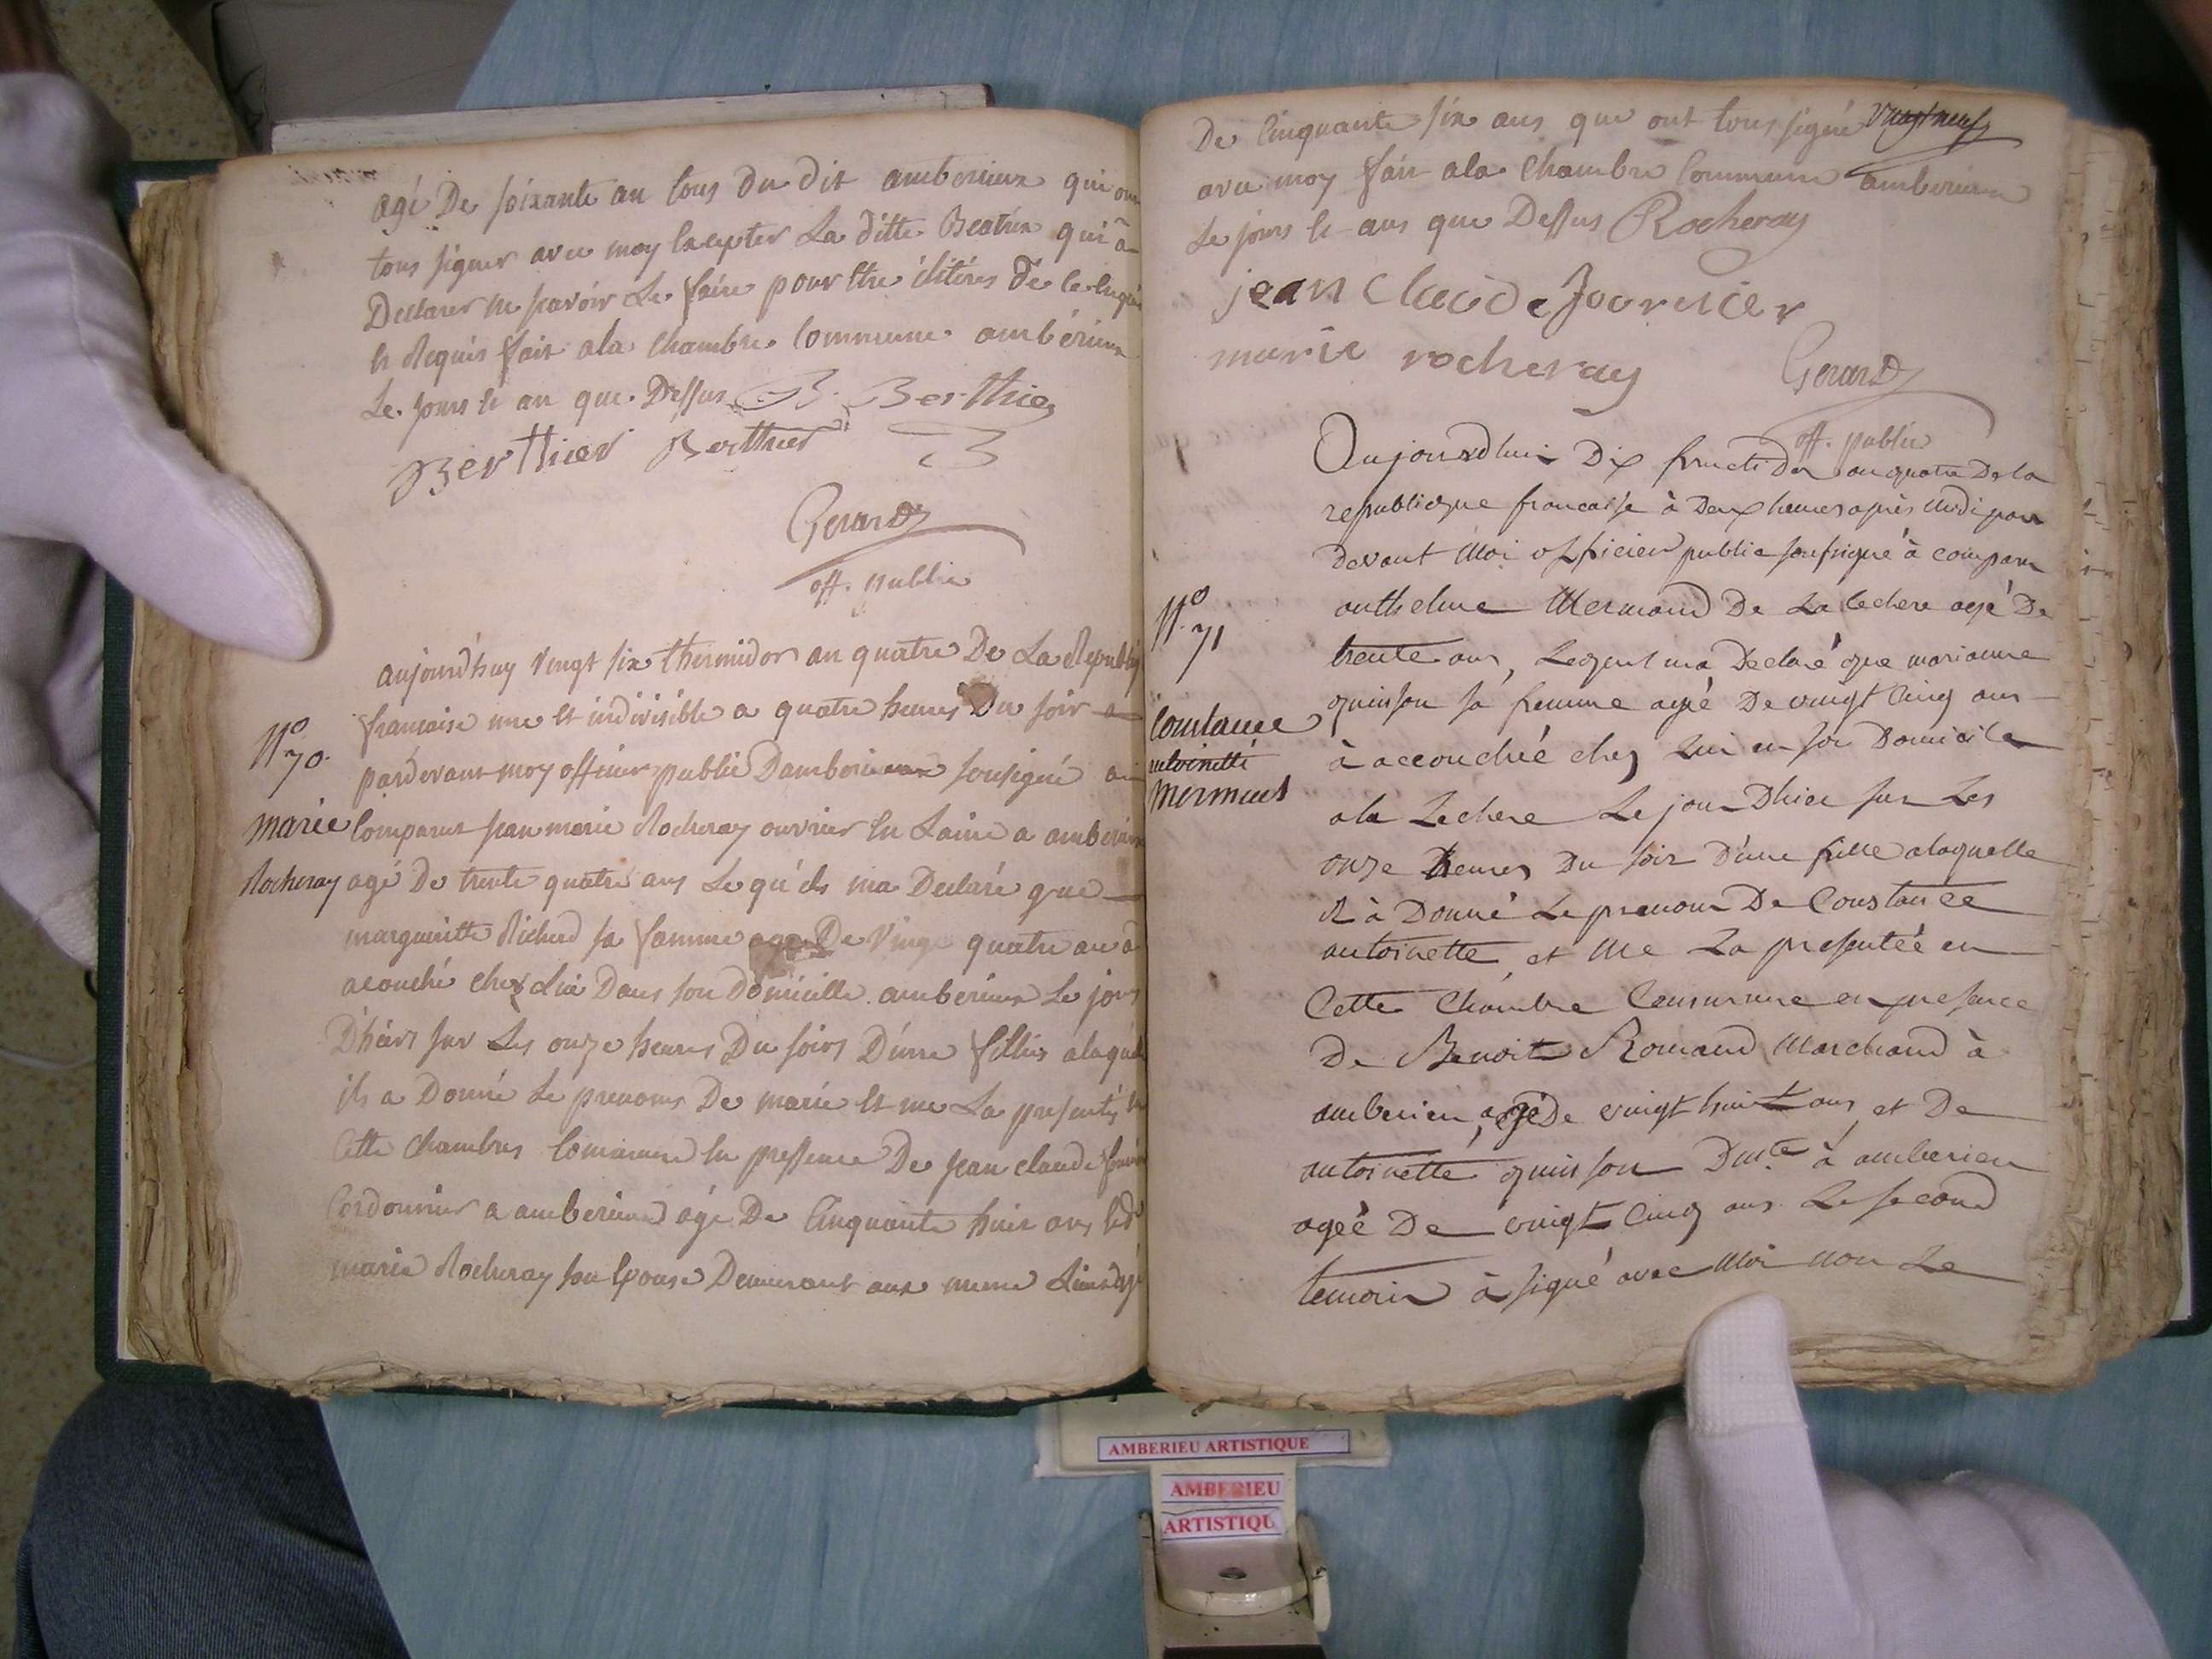 agé De soixante an tous du dit amberieux qui on
tous signer avec moy Excepter La ditte Beatrix qui a
Declarer ne savoir Le faire pour Etre
et Requis fait ala chambre Commune ambérieux
Le jours et an que Dessus B. Berthier
Berthier Berthier
Gerard
off. public
aujourd'huy vingt six thermidor an quatre De La Republiq
francaise une et indivisible a quatre heures Du soir
pardevant moy officier public Damberieux sousigné a
N.o 70.
marie
Rocheray
Comparus jean marie Rocheray ouvrier En Laine a amberieux
agé De trente quatre ans Le quels ma Declaré que
margueritte Richerd sa famme agé De vingt quatre an a
acouché chez Lui Dans son Domicille amberieux Le jours
D'hiers sur Les onze heures Du soirs D'unne fillies alaquel
ils a Donné Le prenoms De marie et me La presentés
Cette chambres Commune En pressence De jean claude
Cordonnier a amberieux agé De Cinquante huit ans
marie Rocheray son Epouse Demeurant aux meme Lieux agé
De Cinquante six ans que ont tous signé vingt neuf
avec moy fait ala Chambre Commune amberieux
Le jours et ans que Dessus Rocheray
jean Claude fournier
marie rocheray Gerard
off. public
Aujourdhui Dix fructidor an quatre De la
republicque francaise à Deux heures après Midi par
devant Moi officier public soussigné à comparu
N.o 71
Constance
antoinette
Mermant
anthelme Mermand De La lechere agé De
trente ans, Lequel m'a Declaré que marianne
quinson sa femme agé De vingt Cinq ans
à accouchée chez Lui en son Domicile
a la Lechere Le jour Dhier sur Les
onze heures Du soir D'une fille alaquelle
il à Donné Le prenom De Constance
antoinette, et Me La presentée en
Cette Chambre Commune en presence
De Benoit Romand Marchand à
amberieu, agé De vingt huit ans, et De
antoinette quinson Dm.te à amberieu
ageé De vingt Cinq ans. Le second
temoin à signé avec Moi non Le
AMBERIEU ARTISTIQUE
AMBERIEU
ARTISTIQU